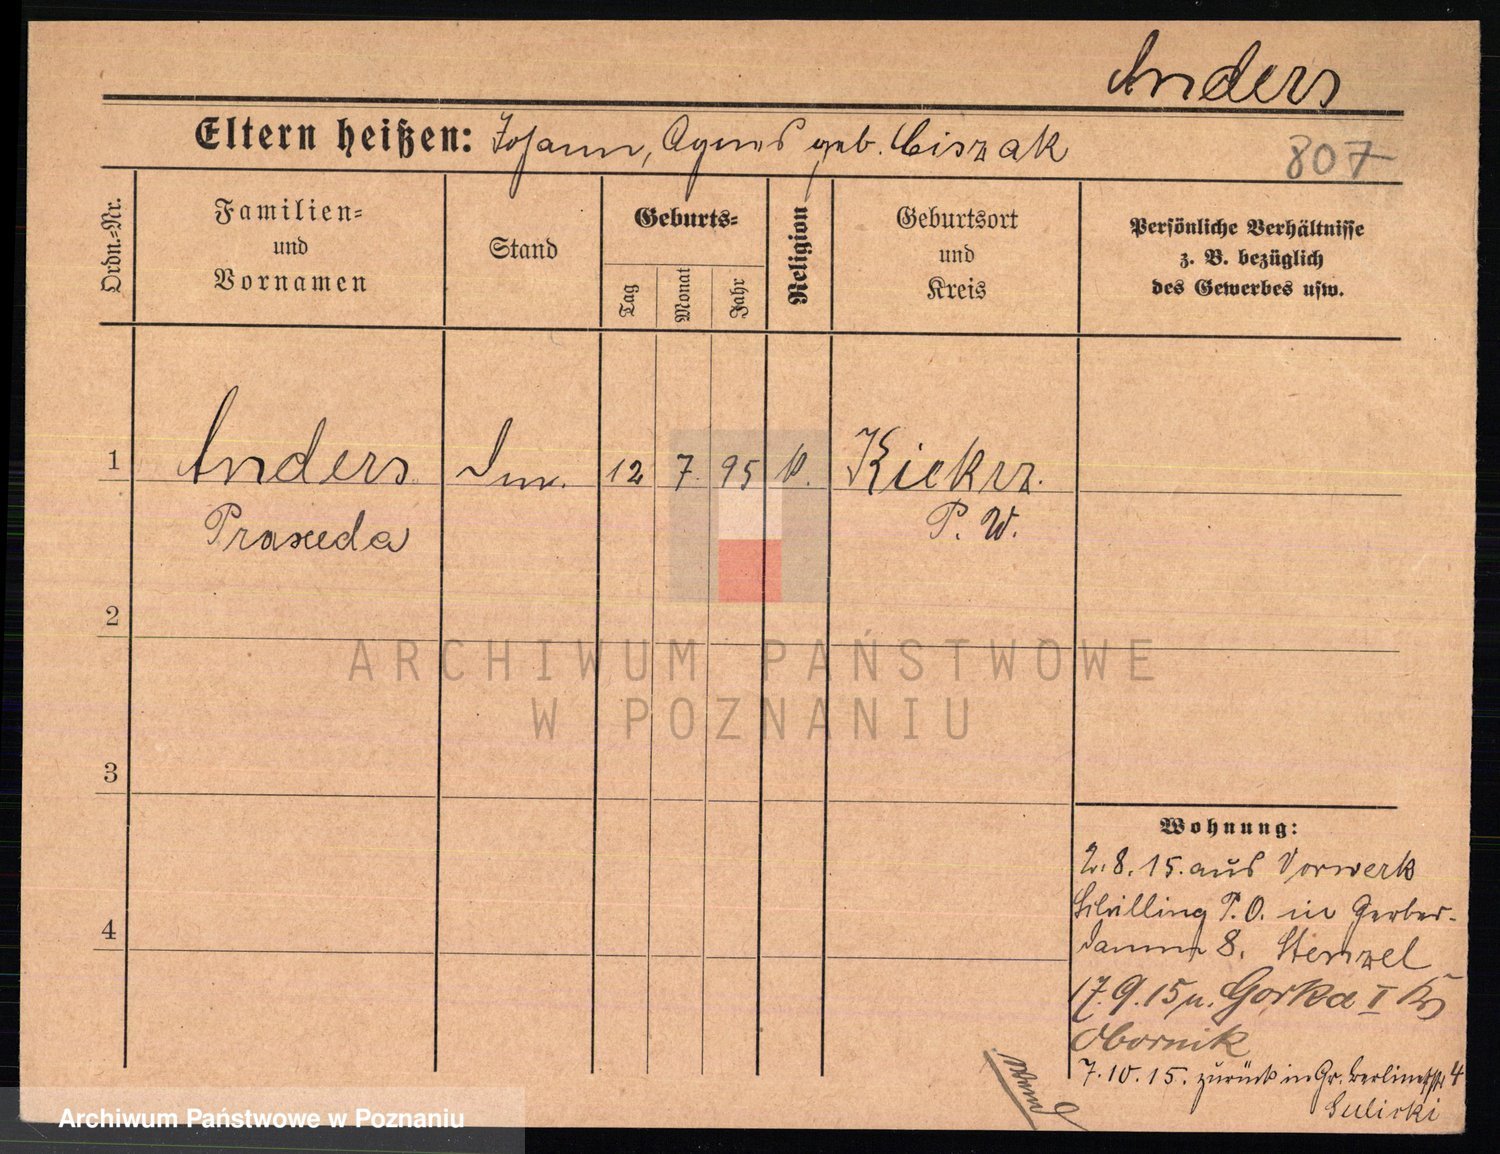 Anders
Eltern heißen: Johann, Agnes geb. Ciszak
807
Ordn.-Nr.
Familien-
und
Vornamen
Stand
Geburts-
Tag
Monat
Jahr
Religion
Geburtsort
und
Kreis
Persönliche Verhältnisse
z. B. bezüglich
des Gewerbes usw.
1
Anders
12
7.
95
k.
Kiekrz.
Praxeda
P. W.
2
3
4
Wohnung:
2.8.15. aus Vorwerk
Schilling P.O. in Gerber-
damm 8. Stenzel
17.9.15 n. Gorka I Kr
Obornik
7.10.15. zurück in Gr. Berlinerstr 4
Sulicki
wend
ARCHIWUM PAŃSTWOWE
W POZNANIU
Archiwum Państwowe w Poznaniu